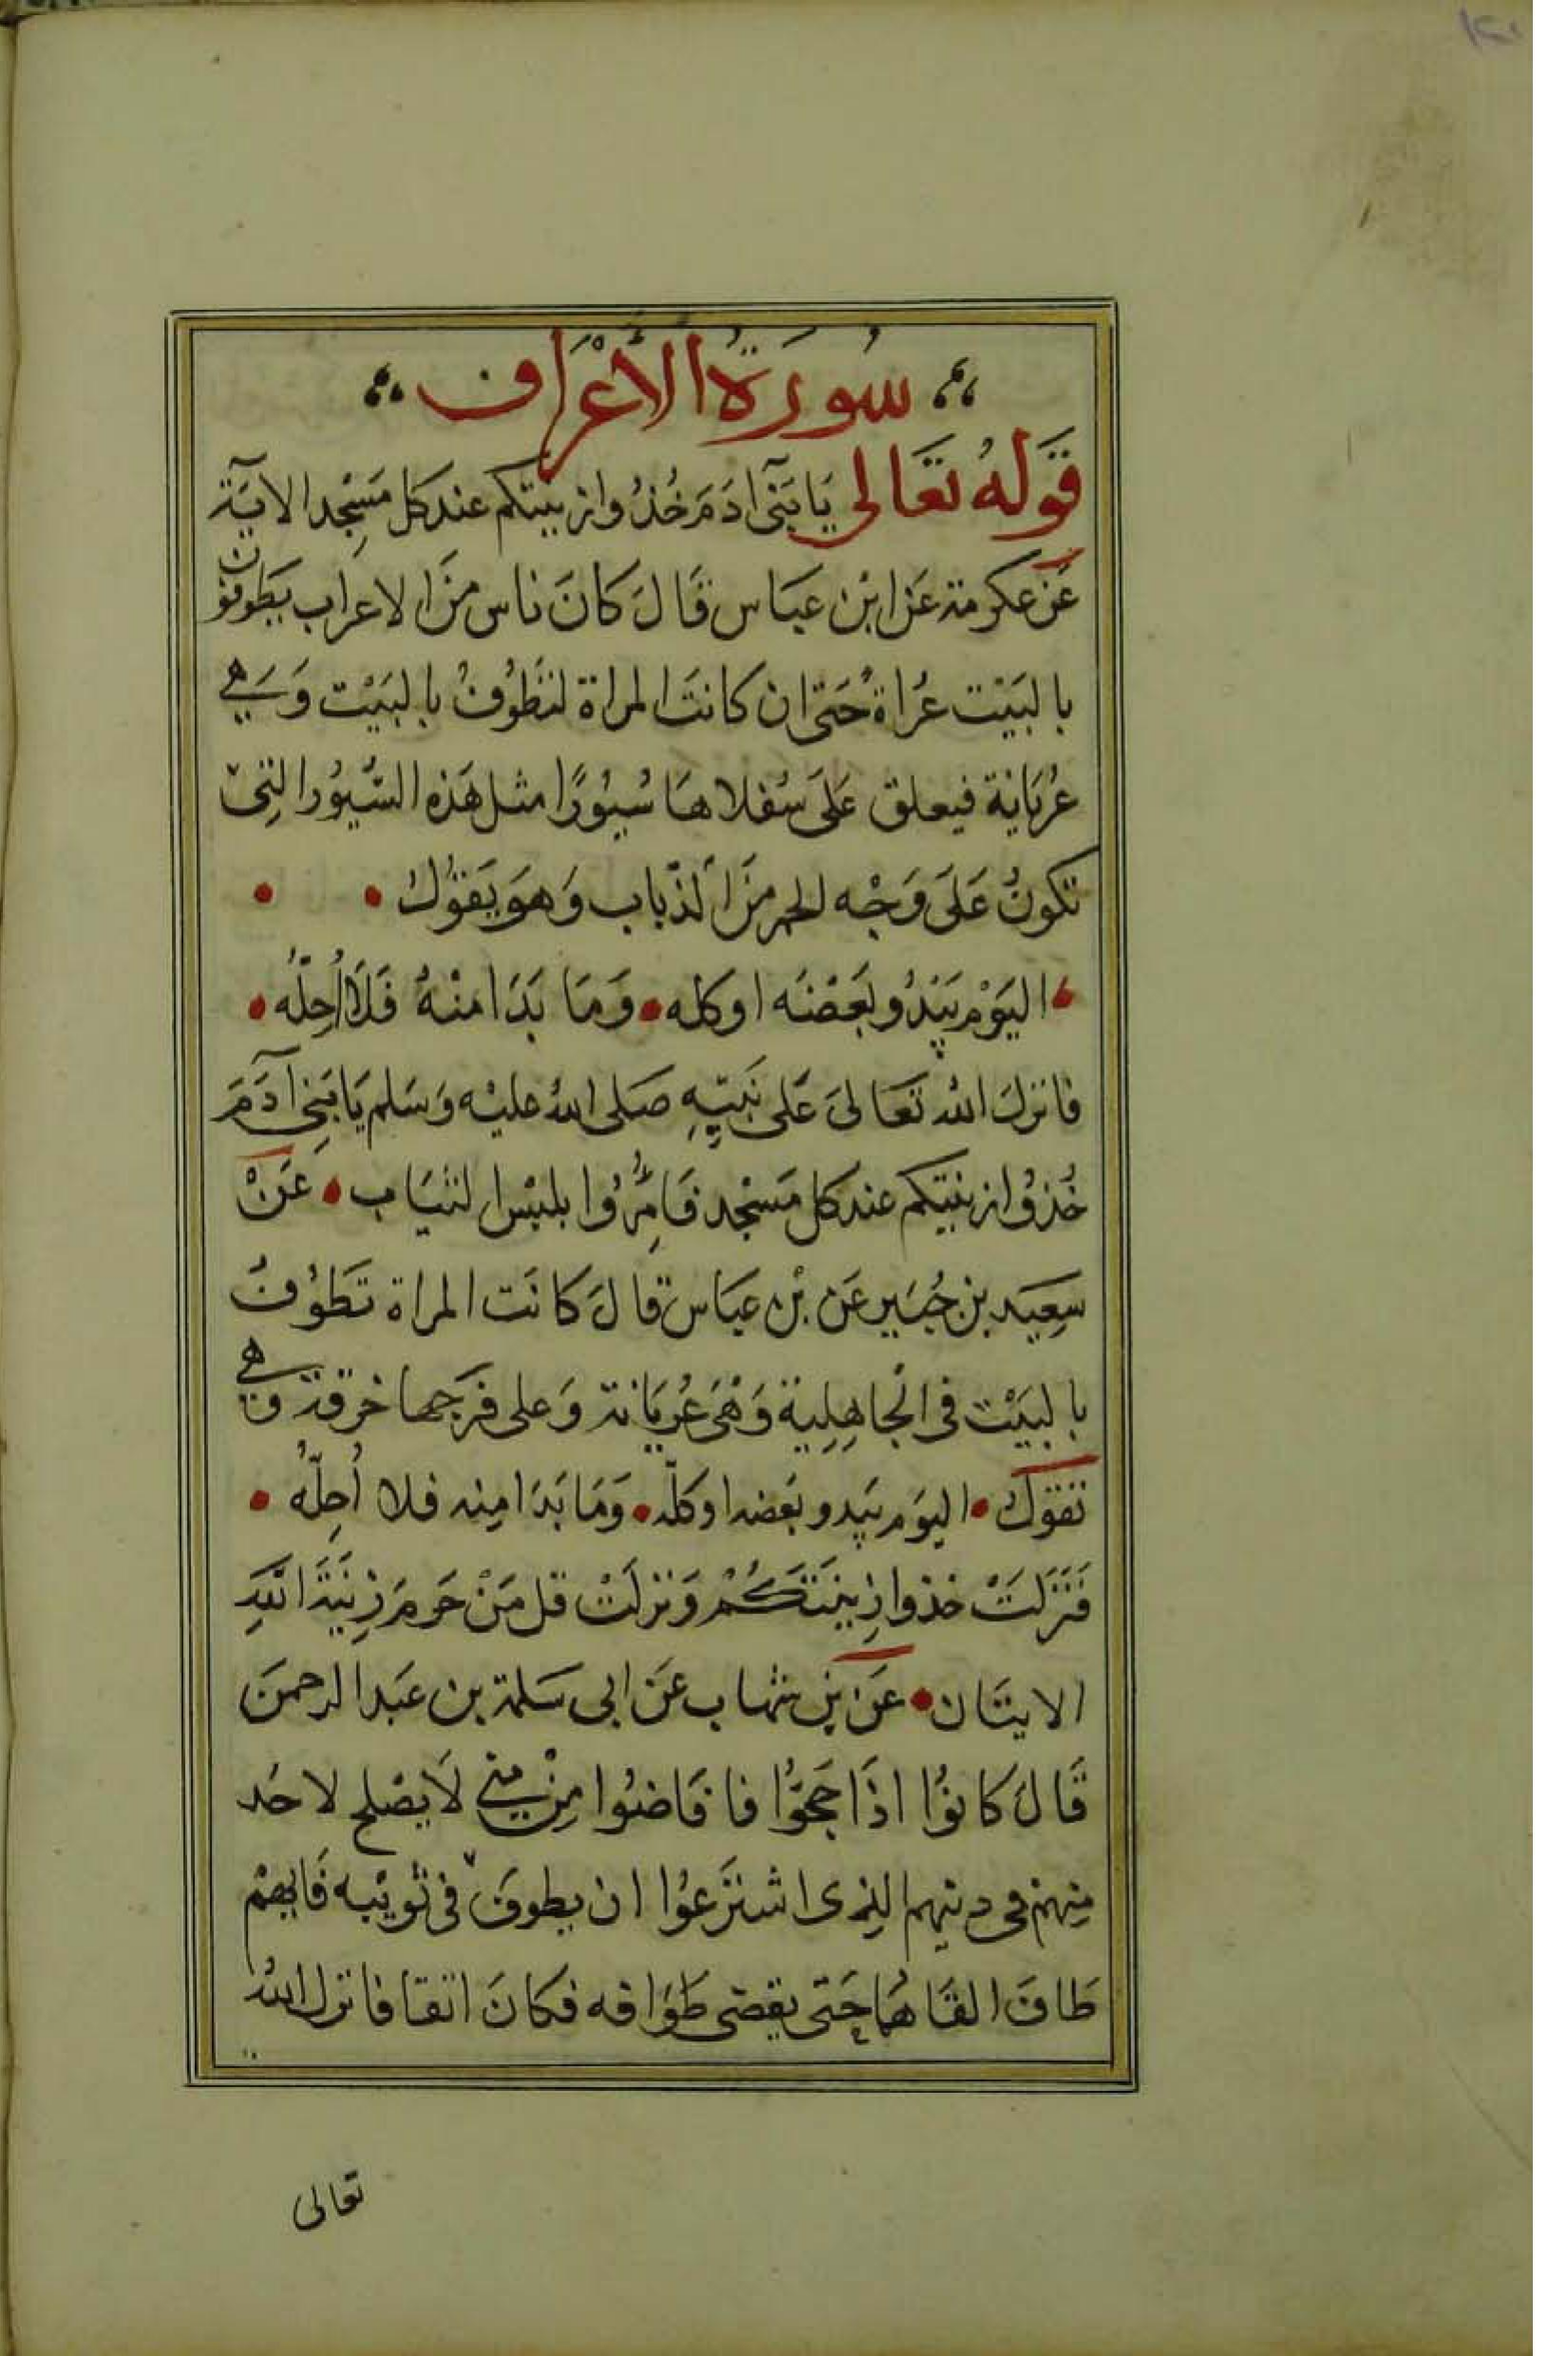 سُورَةُ الأَعْرَاف
قَوله تَعَالى يَا بَنىٓ ادَمَ خُذُوا زينتكم عند كل مَسْجِد الاية
عَن عكرمة عَن ابْن عبَاس قَالَ كَانَ ناس منَ الاعراب يطَوفون
بالبَيْت عُراة حَتى ان كانتَ المراة لتَطُوفُ بالبَيْت وَهي
عُريَانة فيعلق عَلَى سُفلاهَا سُيُورًا مثل هَذه السُّيُور التي
تكونُ عَلَى وَجْه الحمر منَ الذّباب وَهوَ يَقوُلُ
اليَوْم يَبْدُو بَعْضَه او كله وَمَا بَدَا منْهُ فَلَا أُحِلّهُ
فانزلَ الله تَعَالىَ عَلى نَبيّهِ صَلى اللهُ عليْه وَسَلم يَا بَنِي آدَمَ
خُذوُا زينتكم عند كل مَسْجد فَامِرُوا بلبْس الثيَاب عَنْ
سَعِيد بن جُبَير عَن بْن عبَاس قالَ كانَت المراة تطَوُفُ
بالبَيْت فى الجاهِلِية وَهْىَ عُريَانة وَعلى فرجها خرقة وَهي
تقوَلُ اليوَم يَبدو بعَضه او كلّه وَمَا بَدَا مِنه فلا أُحِلّهُ
فَنَزَلَتْ خذوا زِينَتَكُمْ وَنزلَتْ قل مَنْ حَرمَ زِينَةَ اللَّهِ
الايتَان عَن بْن شهاب عَن ابى سَلمة بن عَبد الرحمنَ
قَالَ كانوُا اذَا حَجوُّا فافَاضُوا مِنْ مني لَا يصْلح لاحَد
مِنهمْ فى دينهم الذى اشتَرَعُوا ان يطوفَ فى ثوبَيْه فَايهمْ
طَافَ القَاهُمَا حَتى يقضى طَوَافه فكانَ اتقا فانزل الله
تعالى